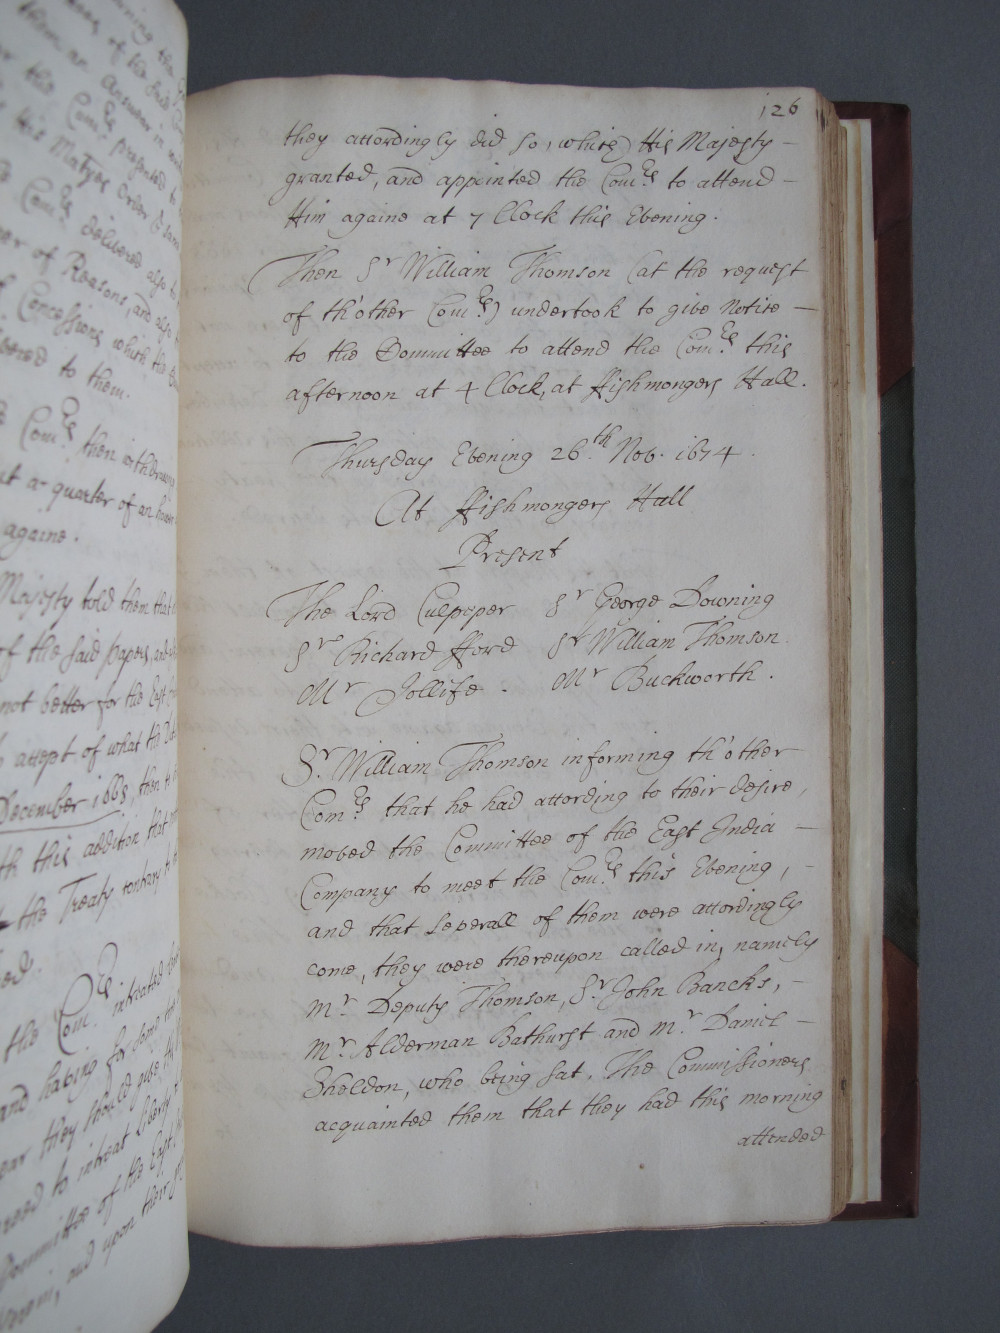 ning the
them an Answer in
the Com.rs prepared to
his Ma.tyes Order &
Com.rs delivered also to
er of Reasons, and also
Concessions which the
vered to them.
Com.rs then withdrawing
at a quarter of an hower
againe.
Majesty told them that
of the said papers, and
not better for the East
accept of what the
December 1668, then to
th this addition that
the Treaty contrary to
ed.
the Com.rs intreated
and having for some
ear they should give
reed to intreat Liberty
Committee of the East
and upon their
126
they accordingly did so, which His Majesty
granted, and appointed the Com.rs to attend
Him againe at 7 Clock this Evening.
Then Sr William Thomson (at the request
of th'other Com.rs) undertook to give Notice
to the Committee to attend the Com.rs this
afternoon at 4 Clock, at ffishmongers Hall.
Thursday Evening 26.th Nov. 1674.
At ffishmongers Hall
Present
The Lord Culpeper Sr George Downing
Sr Richard fford Sr William Thomson.
Mr Jollife. Mr Buckworth.
Sr. William Thomson informing th'other
Com.rs that he had according to their desire,
moved the Committee of the East India
Company to meet the Com.rs this Evening,
and that severall of them were accordingly
come, they were thereupon called in, namely
Mr. Deputy Thomson, Sr. John Bancks,
Mr. Alderman Bathurst and Mr. Daniel
Sheldon, who being sat. The Commissioners
acquainted them that they had this morning
attended